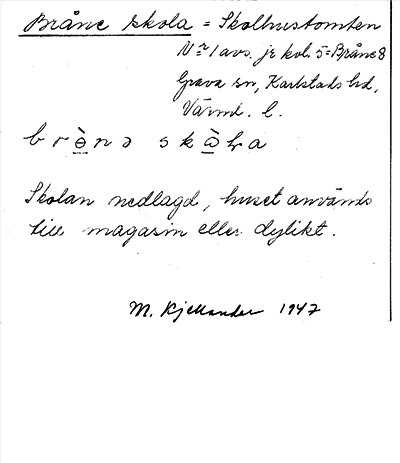 Bråne skola = Skolhustomten
Nr 1 avs. jr kol. 5 = Bråne 8
Grava sn, Karlstads hd,
Värml. l.
b r ө̀ n ə s k ɷ̀ ɽ a
Skolan nedlagd, huset används
till magasin eller dylikt.
M. Kjellander 1947